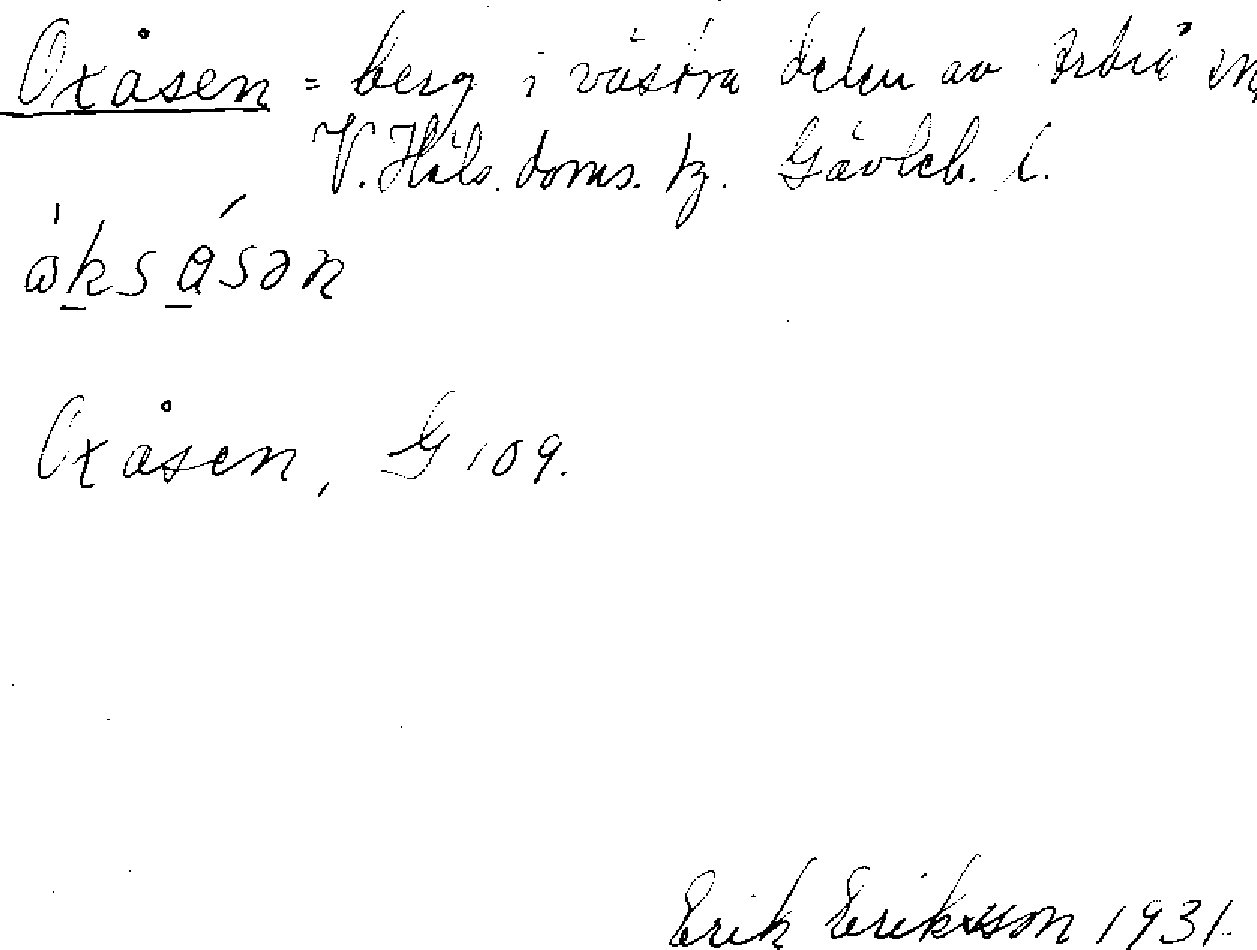 Oxåsen = berg i västra delen av Arbrå sn,
V. Häls. doms. hz. Gävleb. l.
åksåsən
Oxåsen, G 109.
Erik Eriksson 1931.